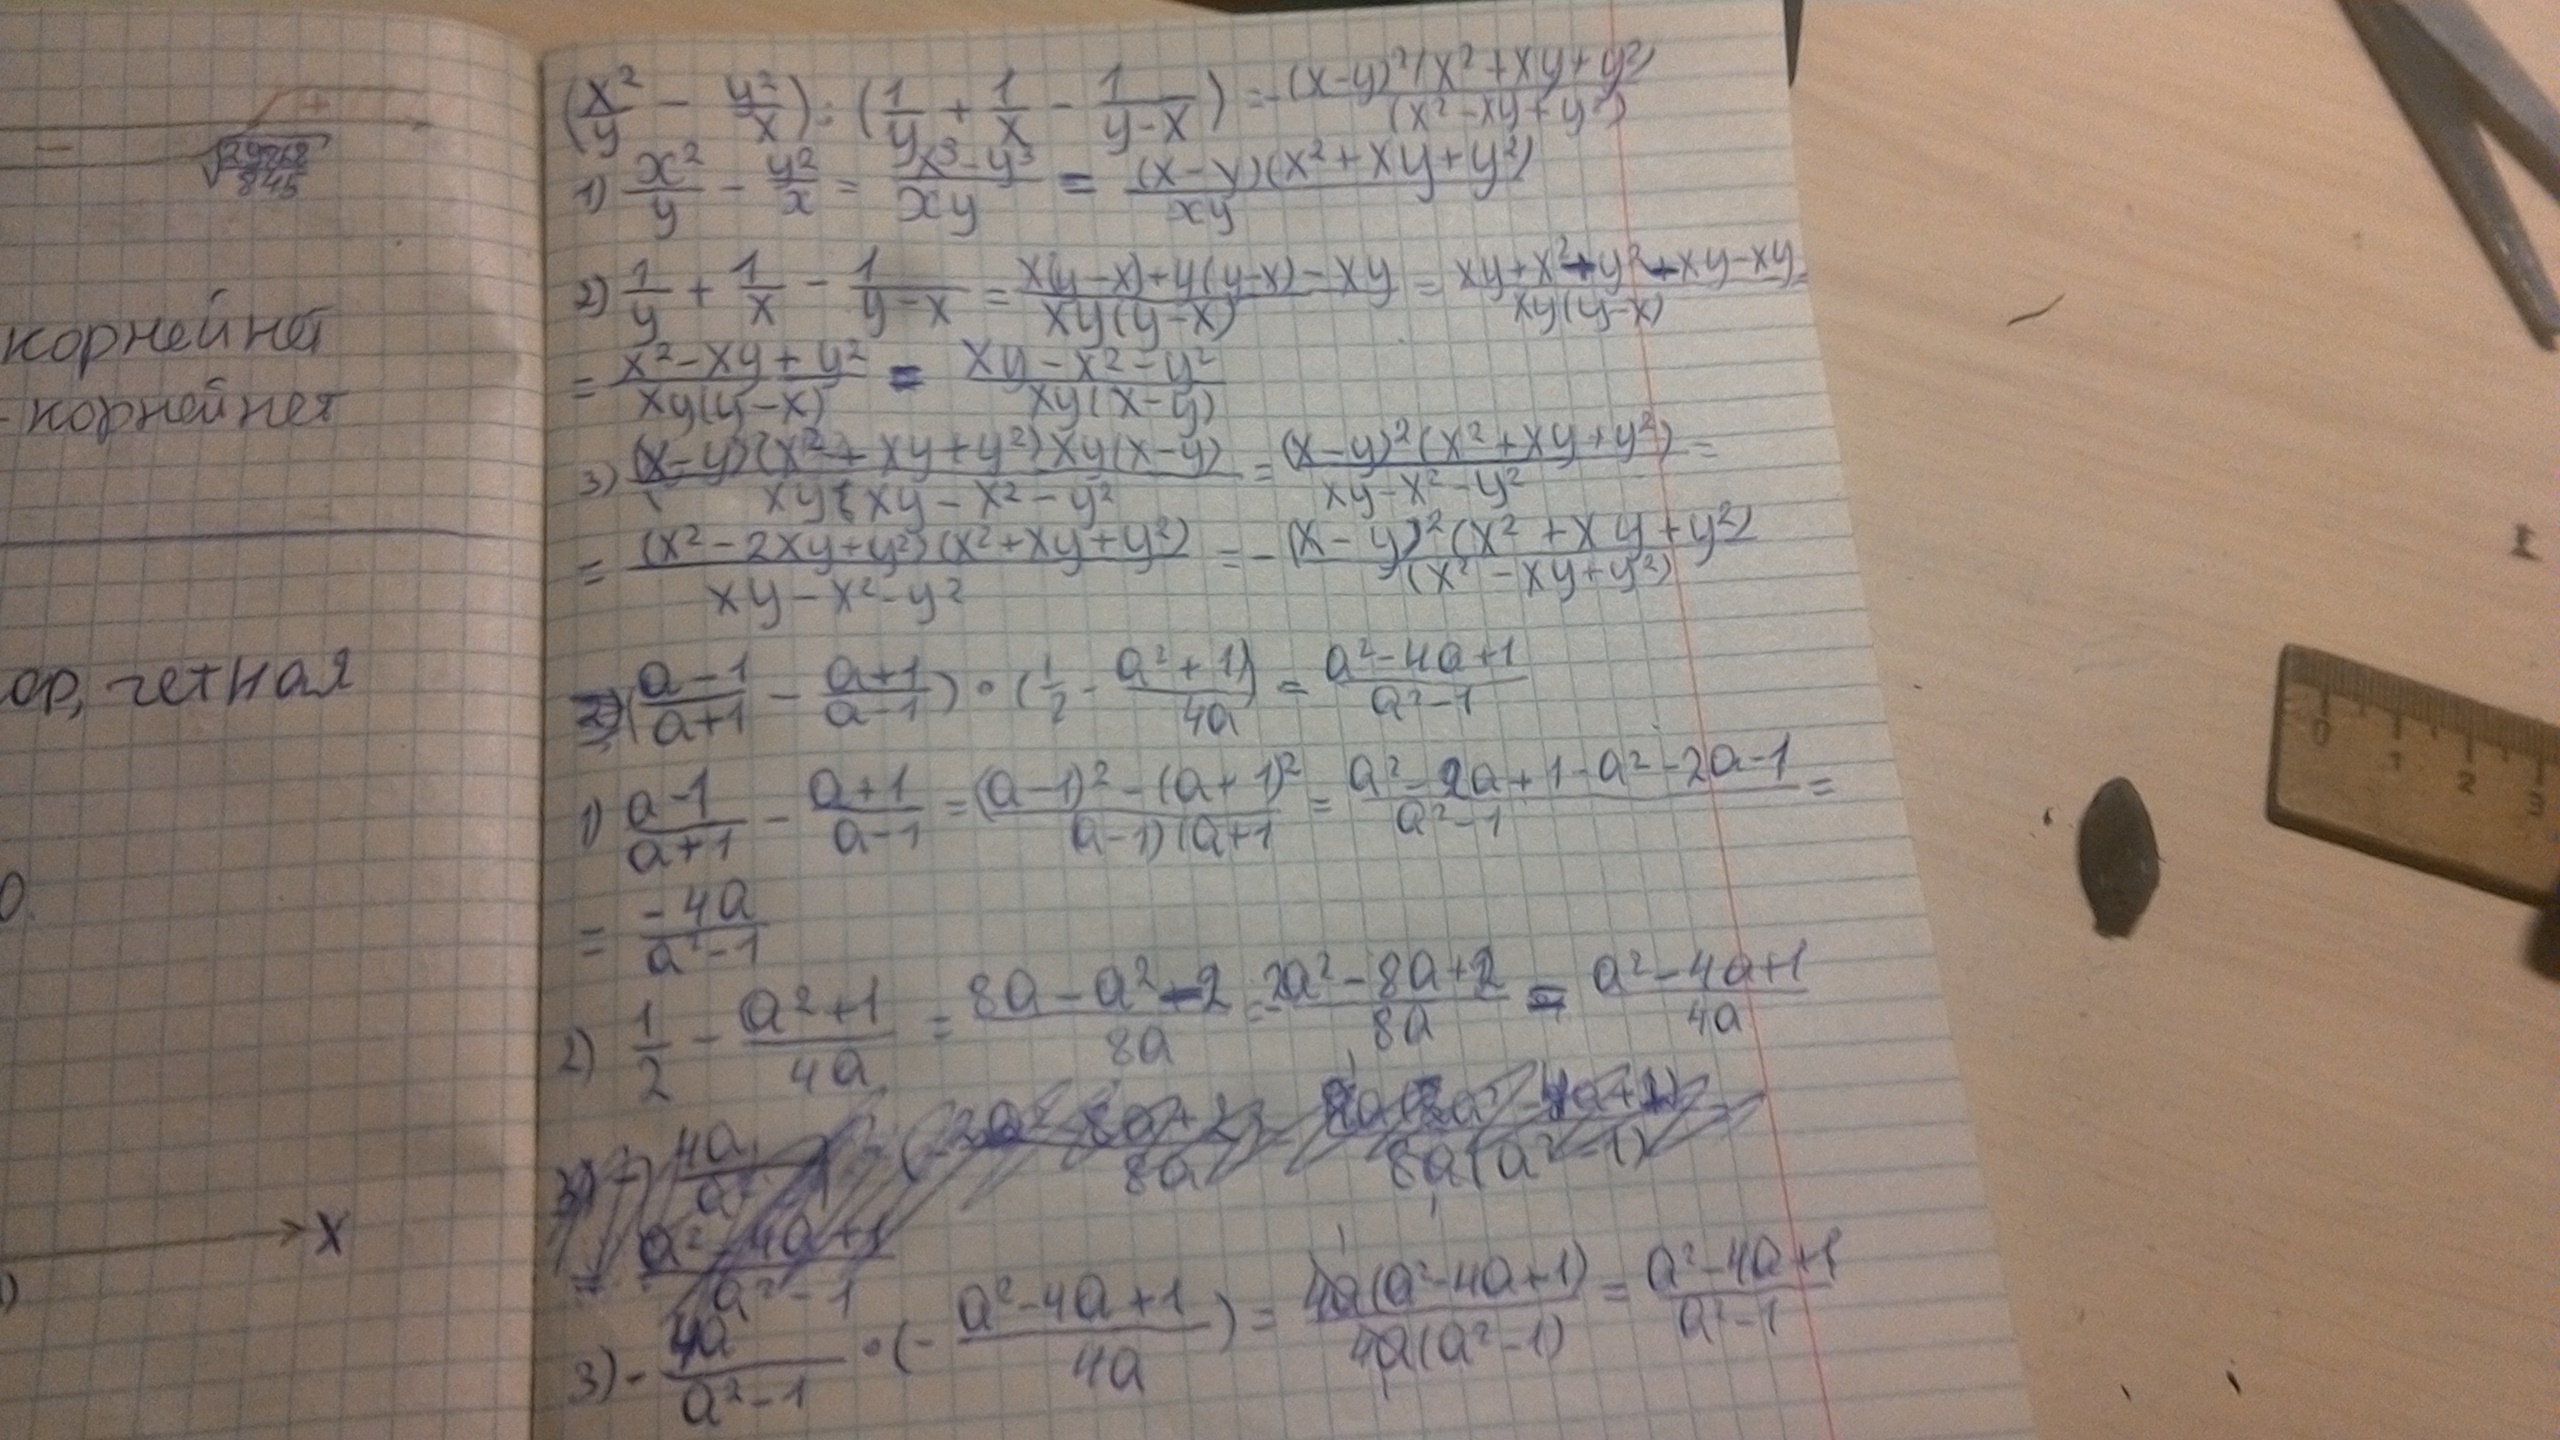 +
−
√(29768/845)
корней нет
- корней нет
ор, четная
0.
x
(x²/y − y²/x) : (1/y + 1/x − 1/(y−x)) = −(x−y)²(x²+xy+y²)/(x²−xy+y²)
1) x²/y − y²/x = (x³−y³)/xy = (x−y)(x²+xy+y²)/xy
2) 1/y + 1/x − 1/(y−x) = (x(y−x)+y(y−x)−xy)/xy(y−x) = (xy+x²+y²+xy−xy)/xy(y−x) =
= (x²−xy+y²)/xy(y−x) = (xy−x²−y²)/xy(x−y)
3) (x−y)(x²+xy+y²)xy(x−y)/xy(xy−x²−y² = (x−y)²(x²+xy+y²)/(xy−x²−y²) =
= (x²−2xy+y²)(x²+xy+y²)/(xy−x²−y²) = −(x−y)²(x²+xy+y²)/(x²−xy+y²)
2) ((a−1)/(a+1) − (a+1)/(a−1)) · (1/2 − (a²+1)/4a) = (a²−4a+1)/(a²−1)
1) (a−1)/(a+1) − (a+1)/(a−1) = ((a−1)²−(a+1)²)/(a−1)(a+1 = (a²−2a+1−a²−2a−1)/(a²−1) =
= −4a/(a²−1)
2) 1/2 − (a²+1)/4a = (8a−a²−2)/8a = −(2a²−8a+2)/8a = (a²−4a+1)/4a
= (a²−4a+1)/(a²−1)
3) − 4a/(a²−1) · (−(a²−4a+1)/4a) = 4a(a²−4a+1)/4a(a²−1) = (a²−4a+1)/(a²−1)